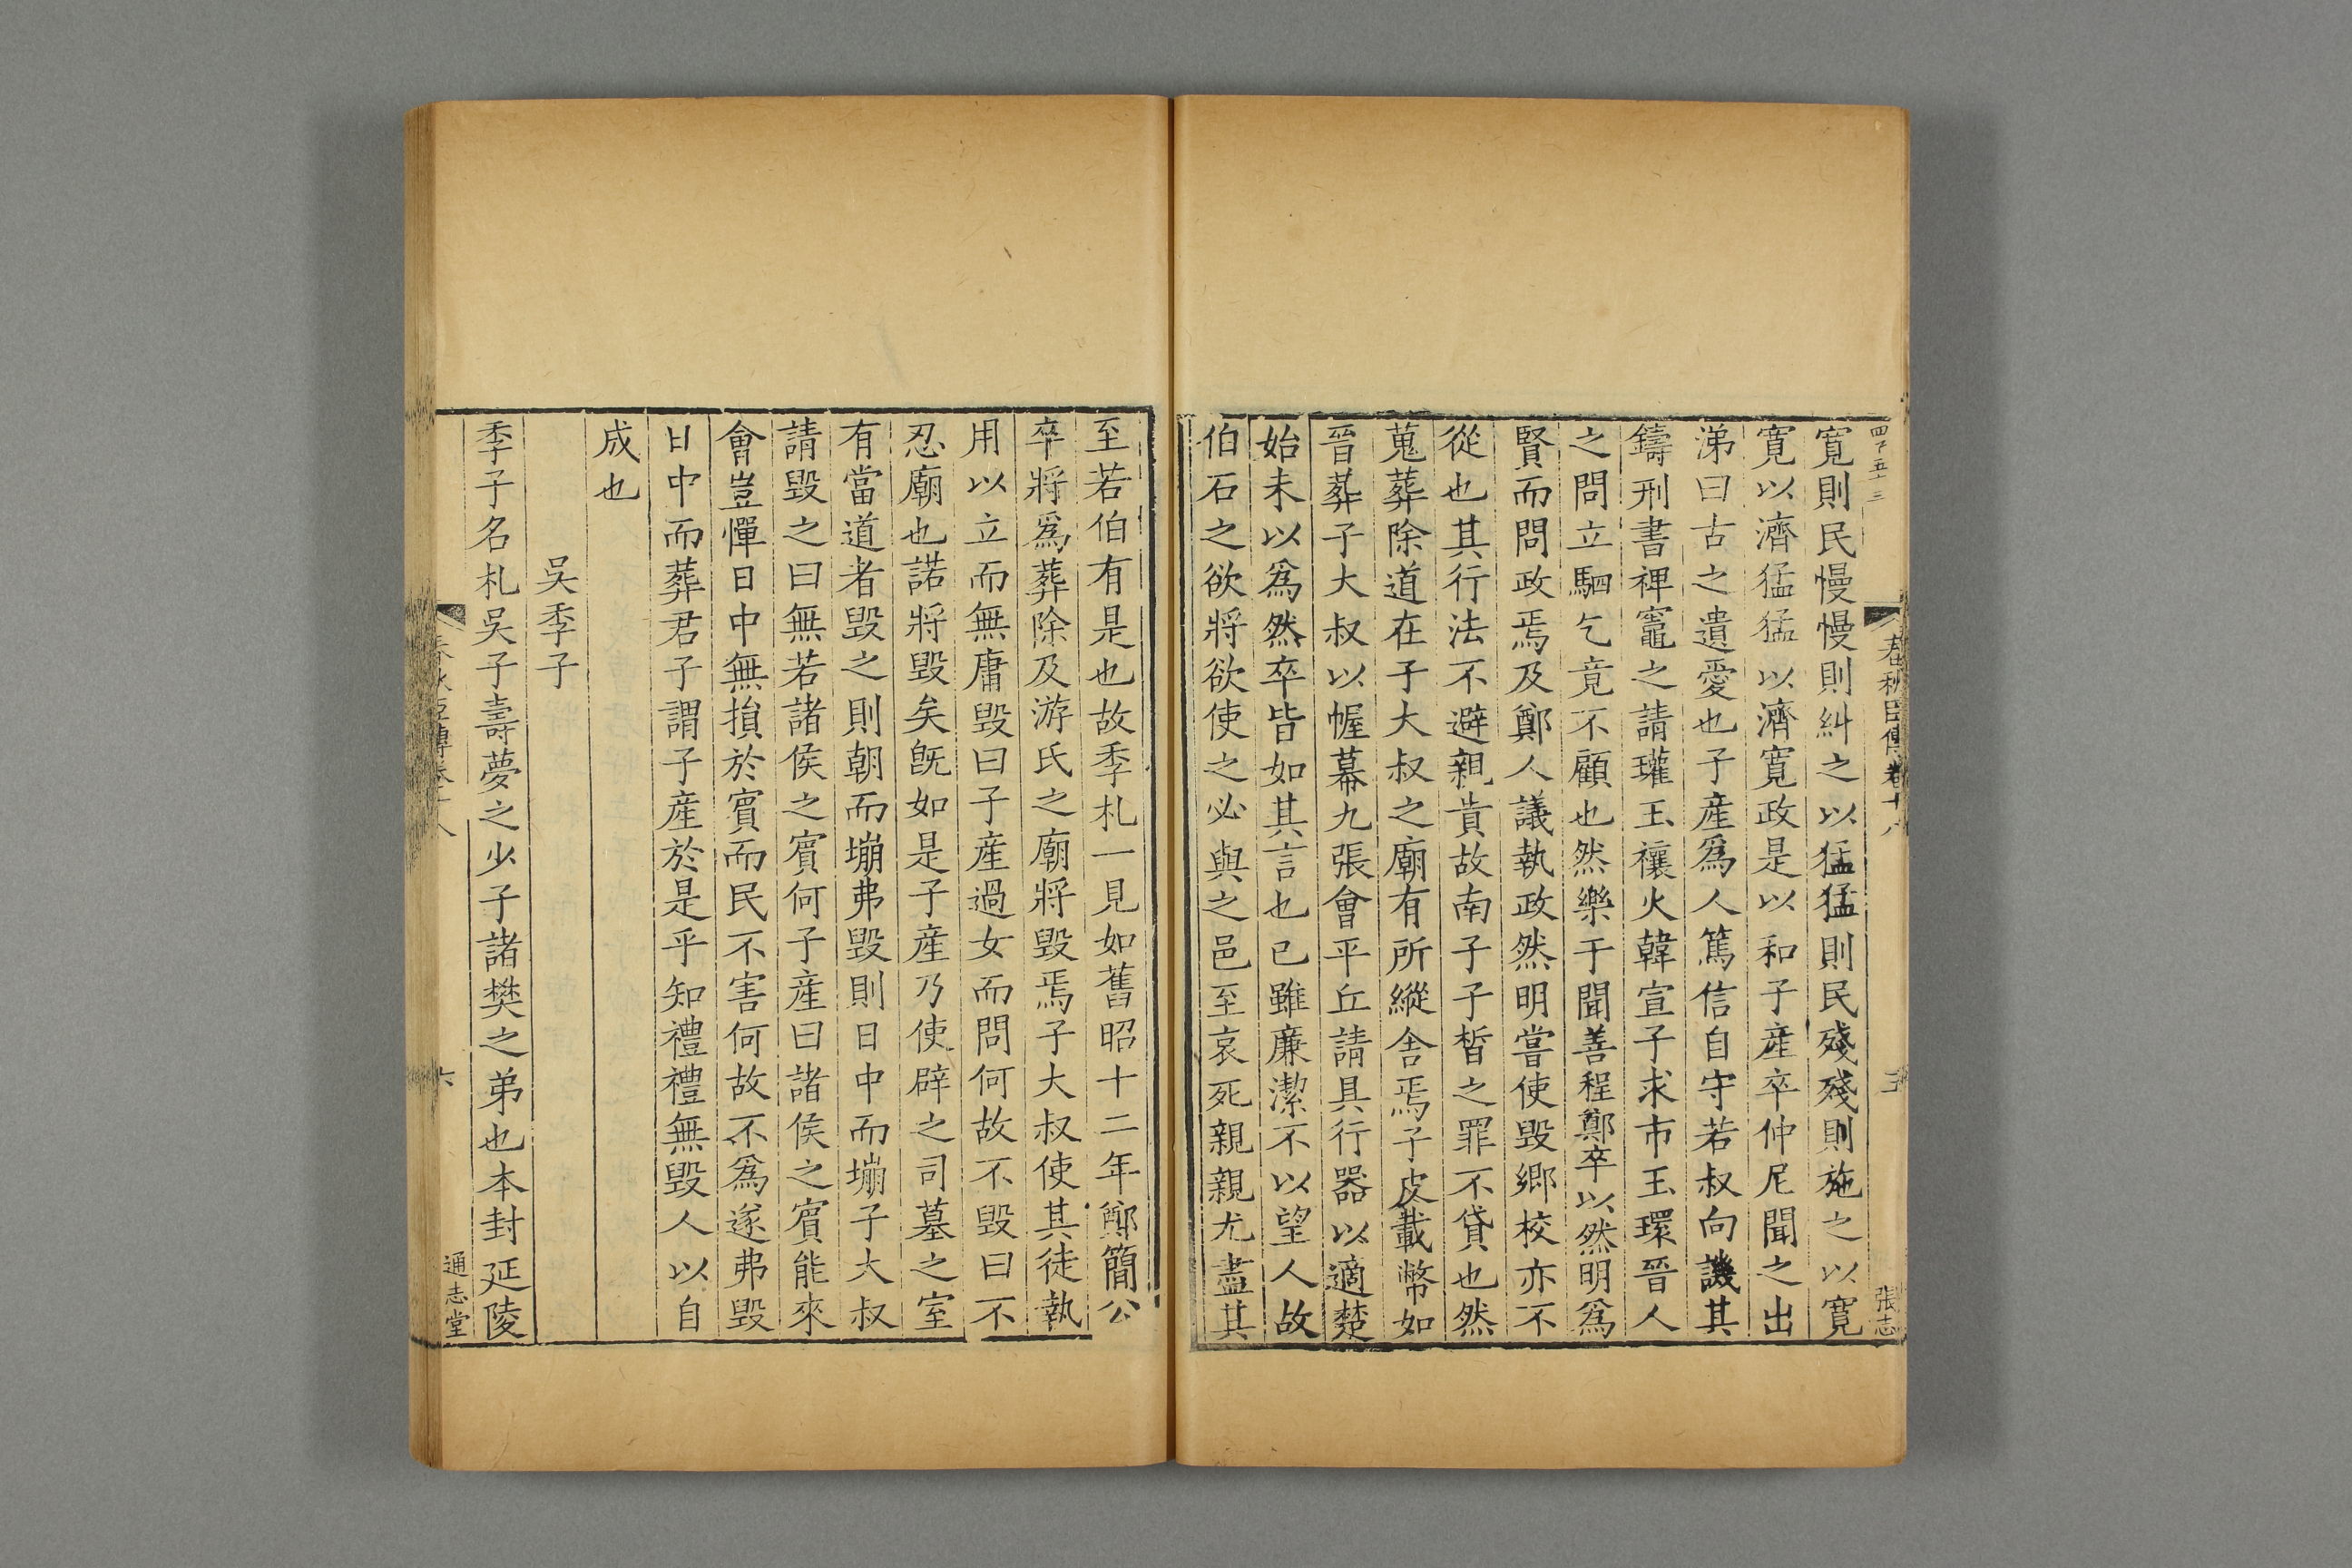 寛則民慢慢則糾之以猛猛則民殘殘則施之以寛
寛以濟猛猛以濟寛政是以和子產卒仲尼聞之出
涕曰古之遺愛也子產爲人篤信自守若叔向譏其
鑄刑書裨竈之請瓘玉禳火韓宣子求市玉環晉人
之問立駟乞竟不顧也然樂于聞善程鄭卒以然明爲
賢而問政焉及鄭人議執政然明嘗使毀鄉校亦不
從也其行法不避親貴故南子子晳之罪不貸也然
蒐葬除道在子大叔之廟有所縱舍焉子皮載幣如
晉葬子大叔以幄幕九張會平丘請具行器以適楚
始未以爲然卒皆如其言也已雖廉潔不以望人故
伯石之欲將欲使之必與之邑至哀死親親尤盡其
春秋臣傳卷十八
張志
至若伯有是也故季札一見如舊昭十二年鄭簡公
卒將爲葬除及游氏之廟將毀焉子大叔使其徒執
用以立而無庸毀曰子產過女而問何故不毀曰不
忍廟也諾將毀矣旣如是子產乃使辟之司墓之室
有當道者毀之則朝而塴弗毀則日中而塴子大叔
請毀之曰無若諸侯之賓何子產曰諸侯之賓能來
會豈憚日中無損於賓而民不害何故不爲遂弗毀
日中而葬君子謂子產於是乎知禮禮無毀人以自
成也
吳季子
季子名札吳子壽夢之少子諸樊之弟也本封延陵
六
通志堂